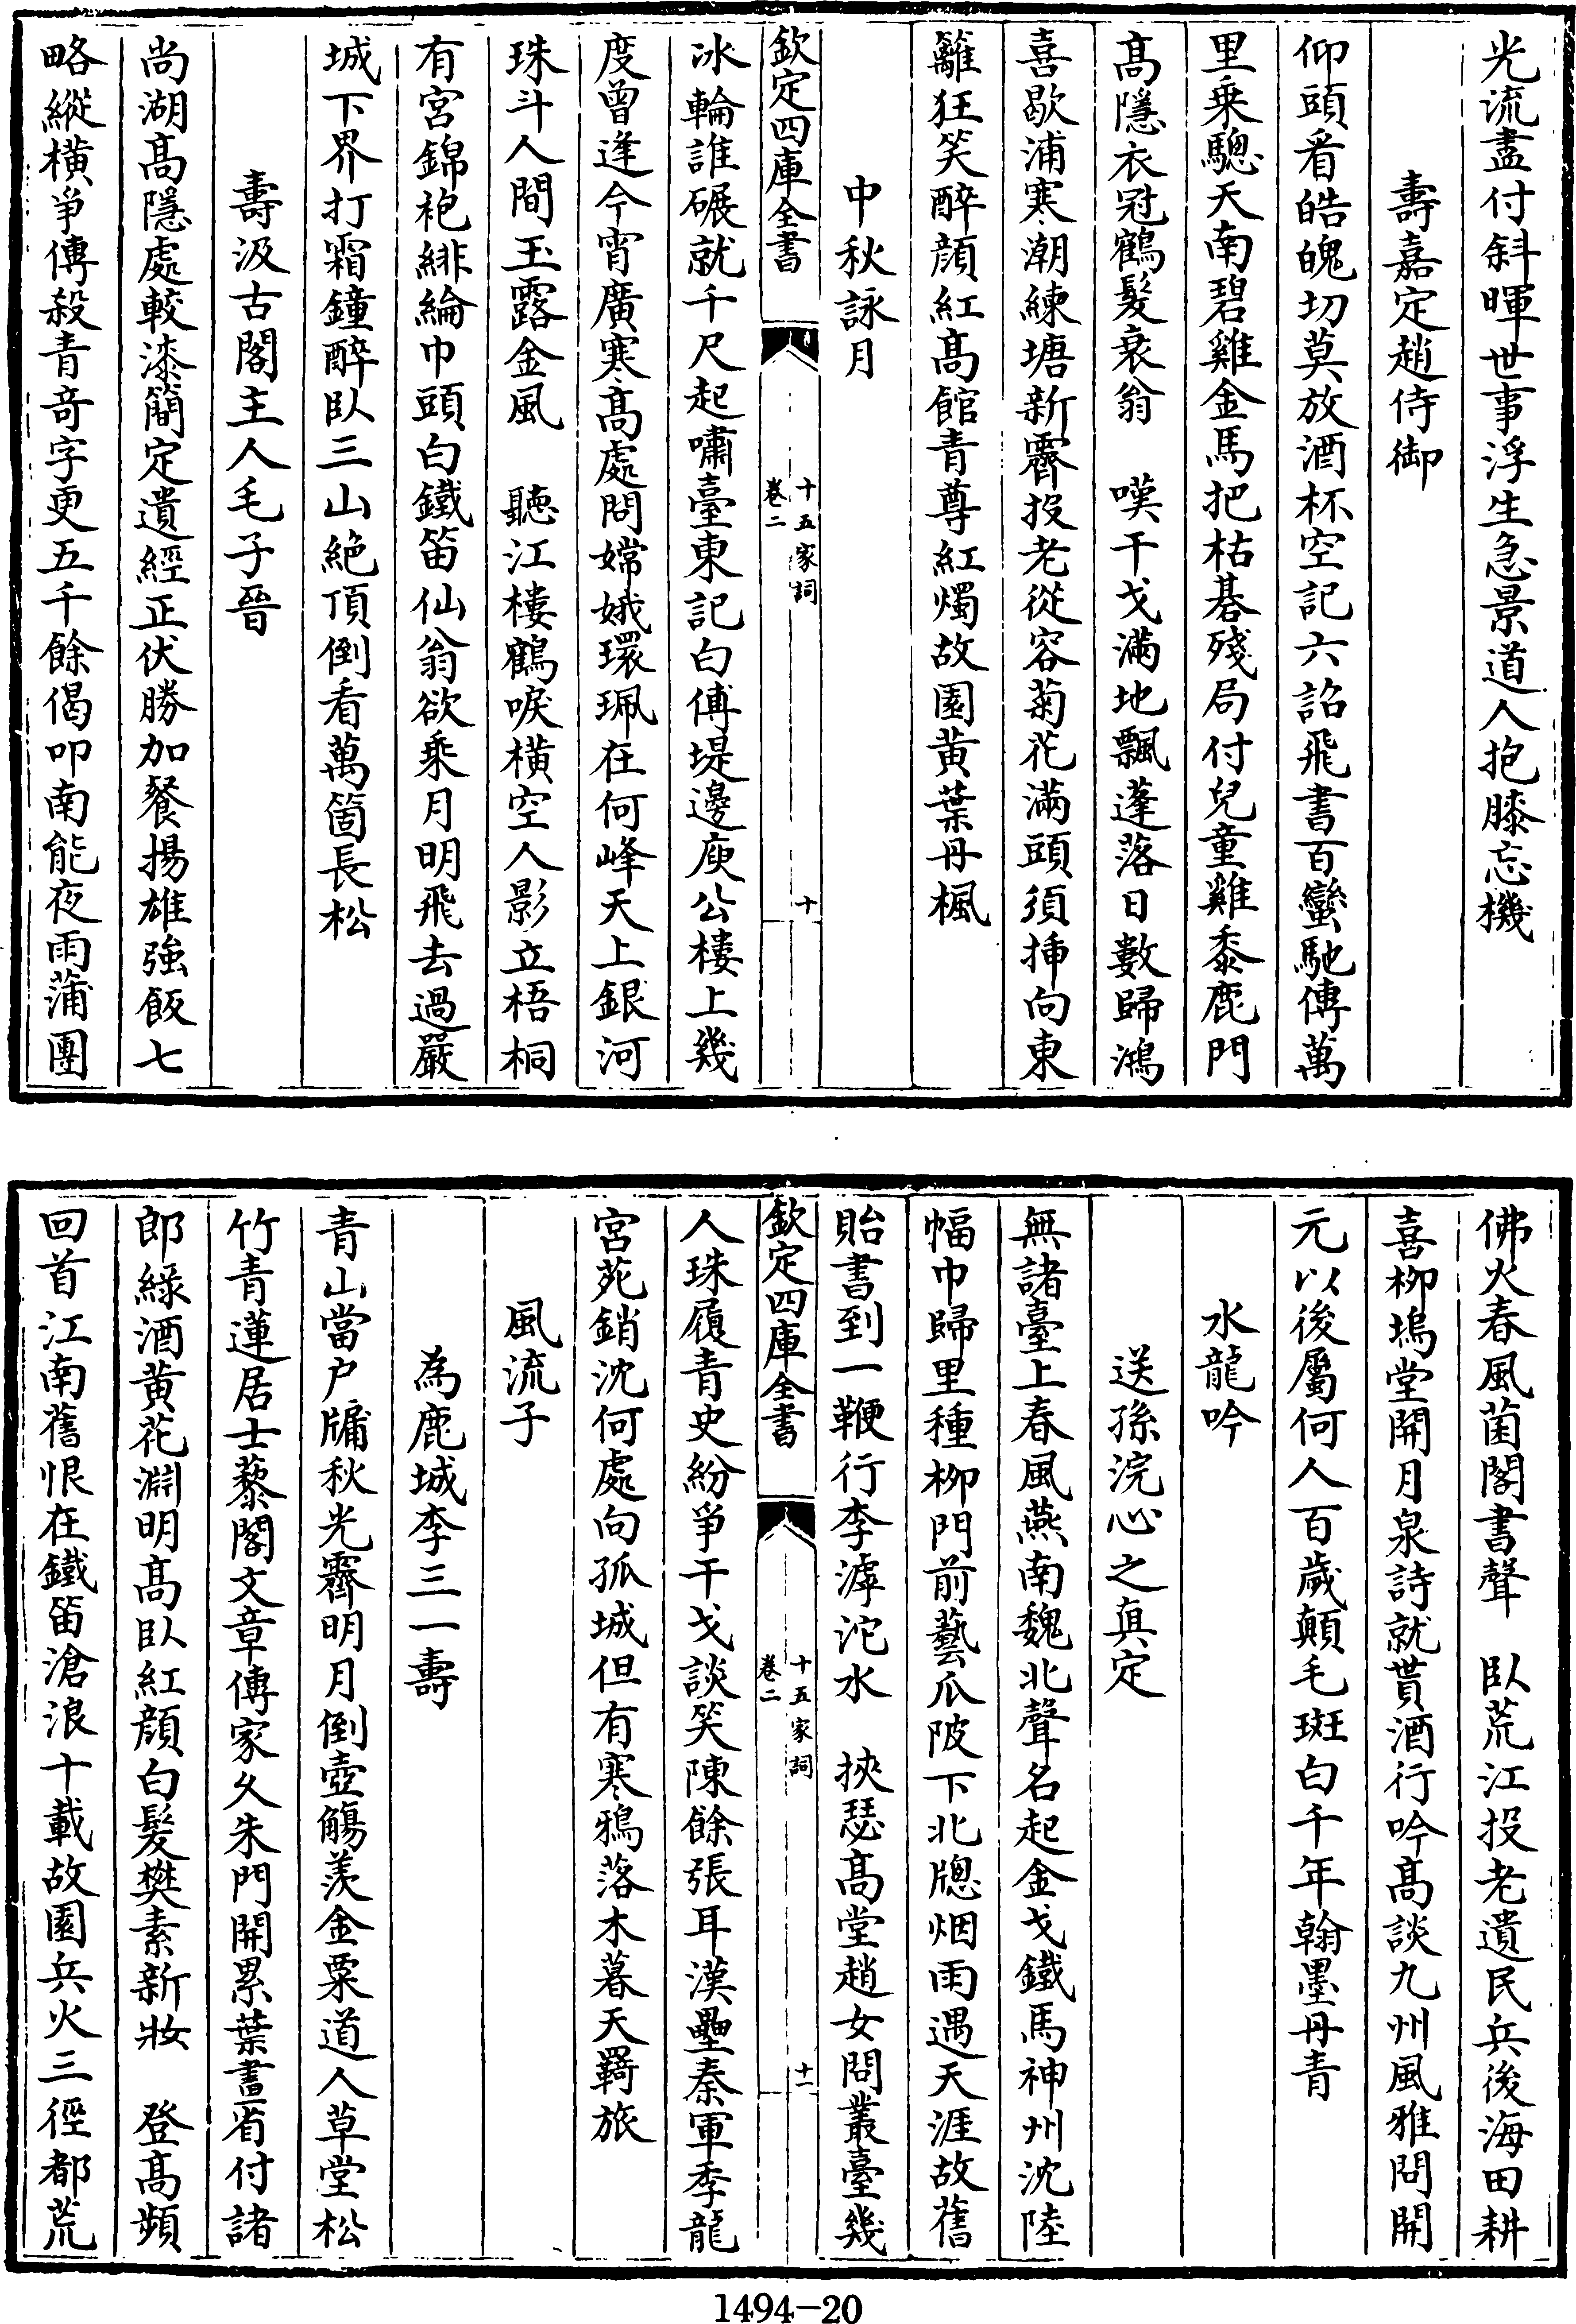 光流盡付斜暉世事浮生急景道人抱膝忘機
壽嘉定趙侍御
仰頭看皓魄切莫放酒杯空記六詔飛書百蠻馳傳萬
里乗驄天南碧雞金馬把枯碁殘局付兒童雞黍鹿門
髙隱衣冠鶴髮衰翁　嘆干戈滿地飄蓬落日數歸鴻
喜歇浦寒潮練塘新霽投老從容菊花滿頭須揷向東
籬狂笑醉顔紅髙館青尊紅燭故園黄葉丹楓
中秋詠月
欽定四庫全書
十五家詞
卷二
十
冰輪誰碾就千尺起嘯臺東記白傅堤邊庾公樓上幾
度曾逢今宵廣寒髙處問嫦娥環珮在何峰天上銀河
珠斗人間玉露金風　聽江樓鶴唳横空人影立梧桐
有宮錦袍緋綸巾頭白鐵笛仙翁欲乘月明飛去過嚴
城下界打霜鐘醉臥三山絶頂倒看萬箇長松
壽汲古閣主人毛子晉
尚湖髙隱處較漆簡定遺經正伏勝加餐揚雄強飯七
略縱横爭傳殺青奇字更五千餘偈叩南能夜雨蒲團
佛火春風菌閣書聲　臥荒江投老遺民兵後海田耕
喜柳塢堂開月泉詩就貰酒行吟髙談九州風雅問開
元以後屬何人百歲顛毛斑白千年翰墨丹青
水龍吟
送孫浣心之真定
無諸臺上春風燕南魏北聲名起金戈鐵馬神州沈陸
幅巾歸里種柳門前藝瓜陂下北牕烟雨遇天涯故舊
貽書到一鞭行李滹沱水　挾瑟髙堂趙女問叢臺幾
欽定四庫全書
十五家詞
卷二
十一
人珠履青史紛爭干戈談笑陳餘張耳漢壘秦軍季龍
宮苑銷沈何處向孤城但有寒鴉落木暮天羇旅
風流子
為鹿城李三一壽
青山當户牖秋光霽明月倒壺觴羨金粟道人草堂松
竹青蓮居士藜閣文章傳家久朱門開累葉畫省付諸
郎緑酒黄花淵明髙臥紅顔白髮樊素新妝　登髙頻
回首江南舊恨在鐵笛滄浪十載故園兵火三徑都荒
1494-20